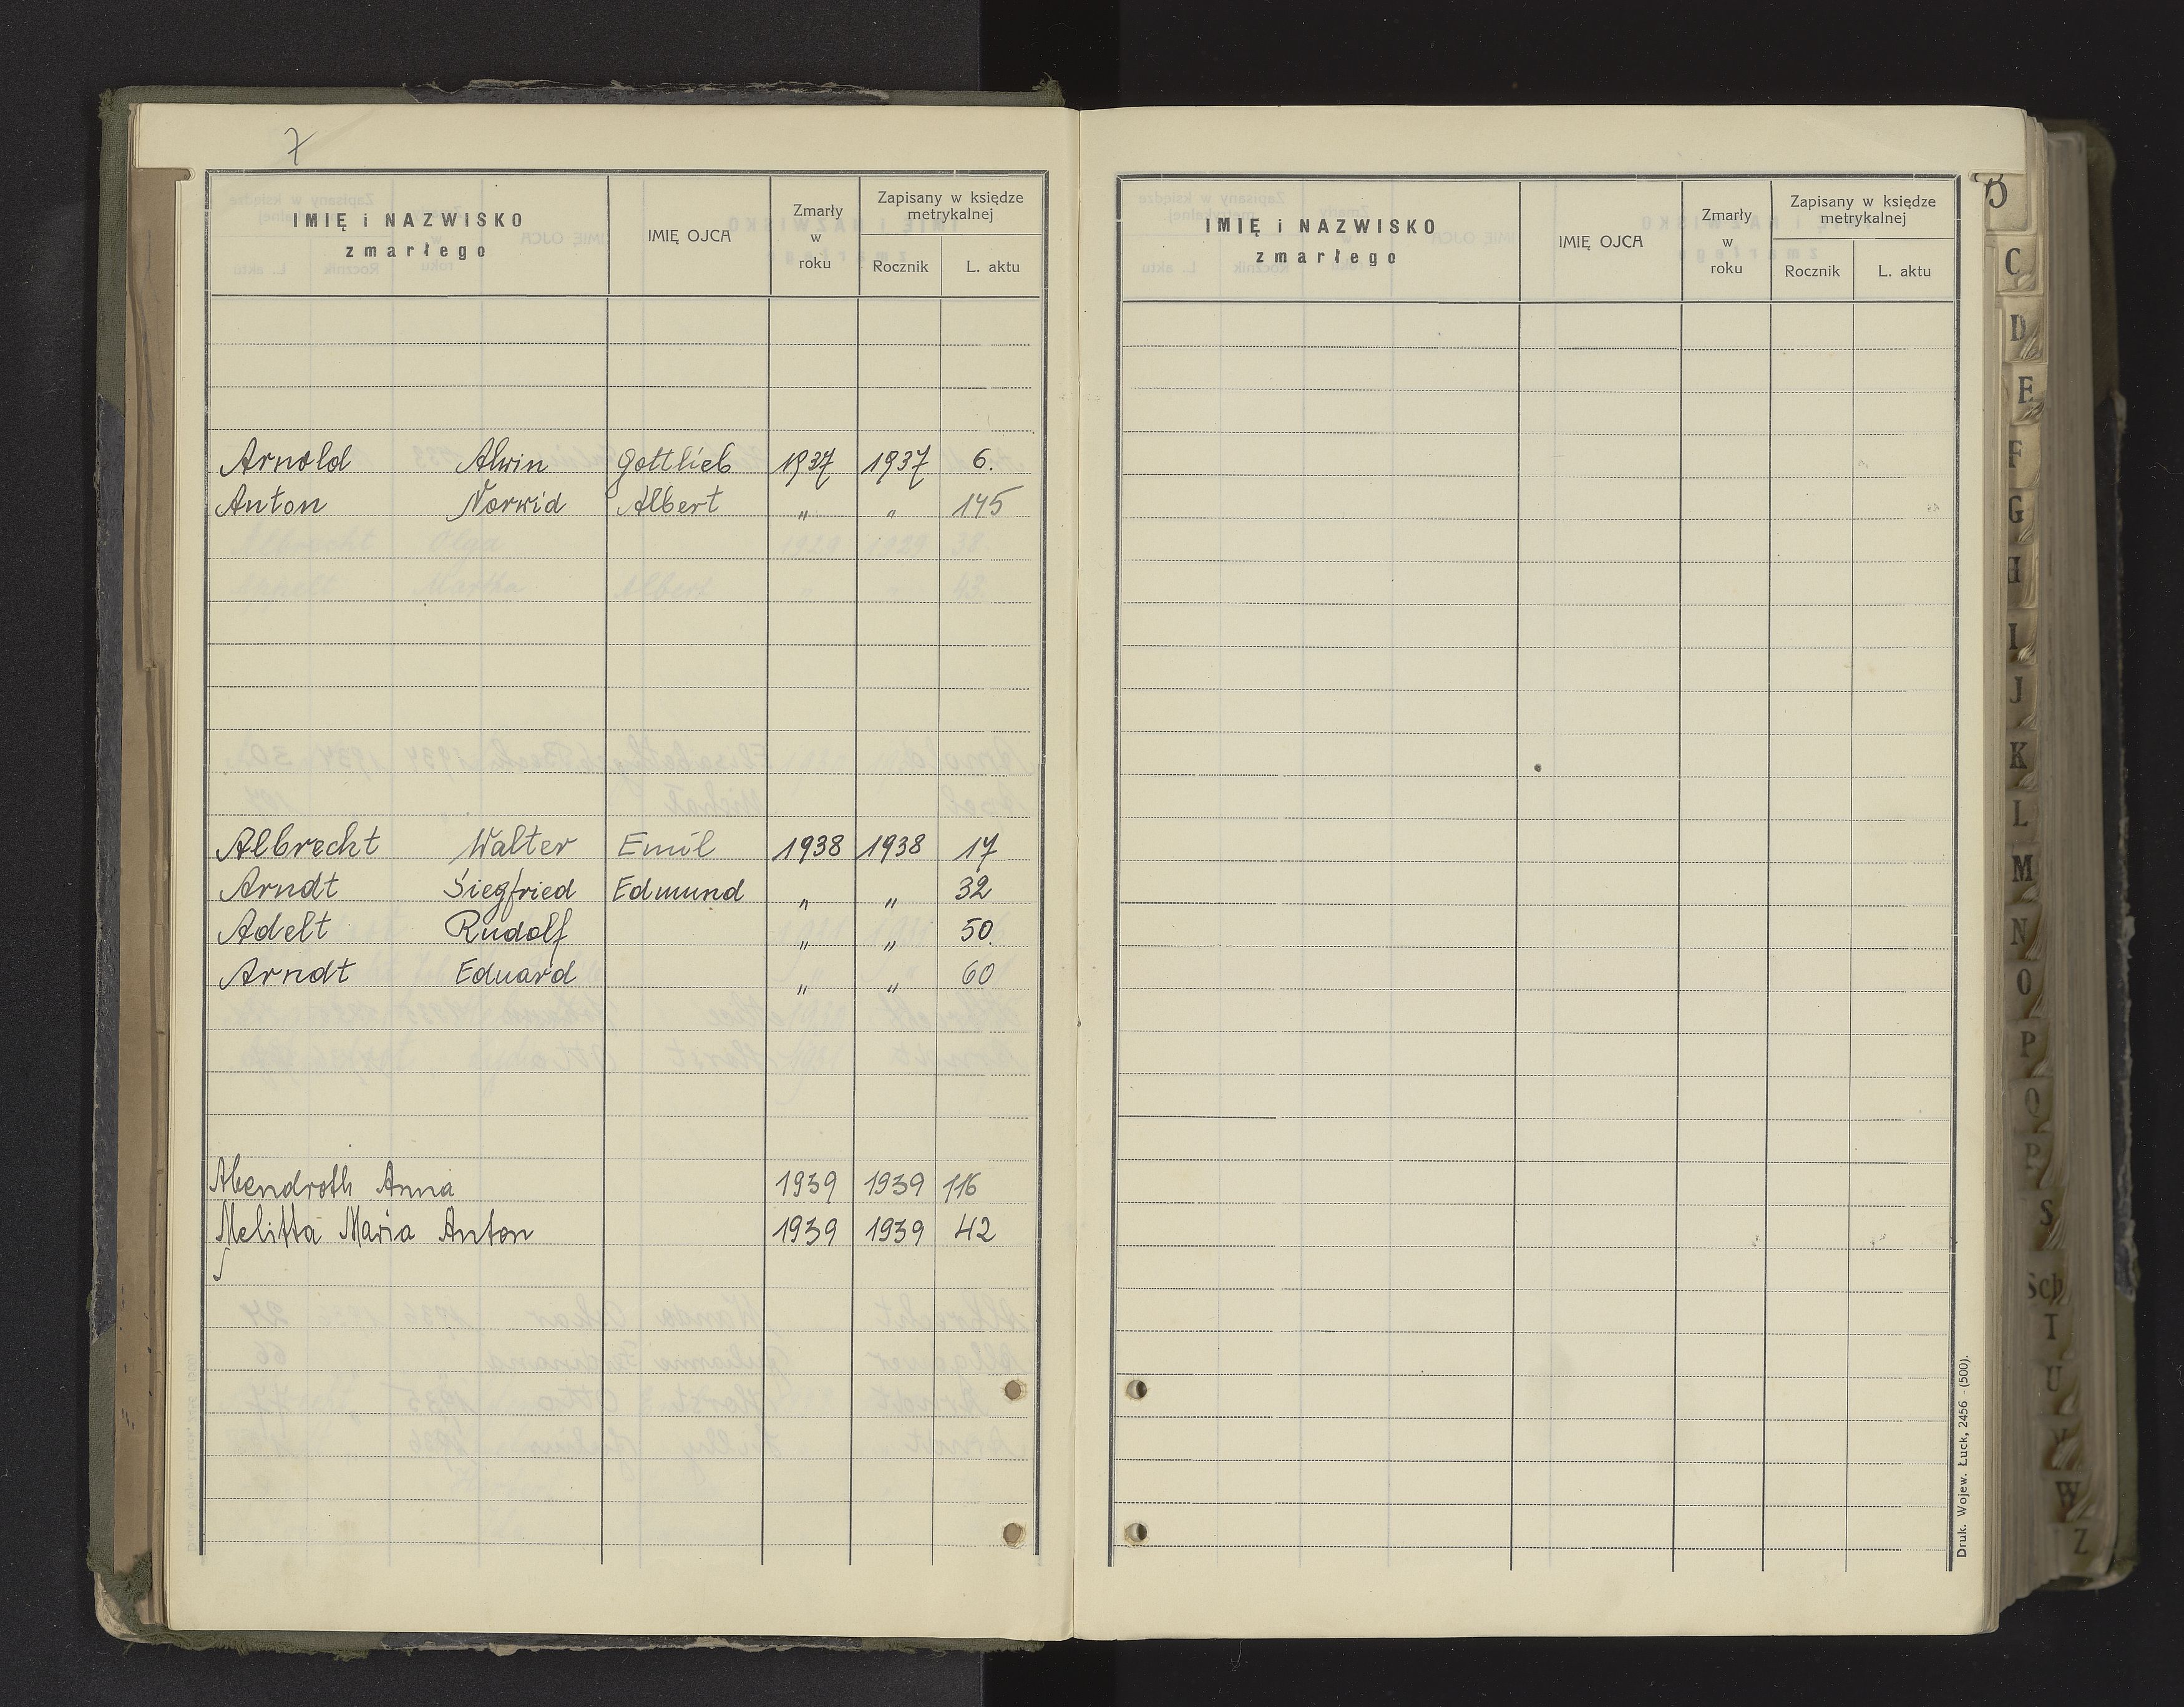 7
IMIĘ i NAZWISKO zmarłego | IMIĘ OJCA | Zmarły w roku | Zapisany w księdze metrykalnej
Rocznik | L. aktu
Arnold Alwin | Gottlieb | 1937 | 1937 | 6.
Anton Norwid | Albert | " | " | 145
Albrecht Walter | Emil | 1938 | 1938 | 17
Arndt Siegfried | Edmund | " | " | 32
Adelt Rudolf | " | " | 50.
Arndt Eduard | " | " | 60
Abendroth Anna | 1939 | 1939 | 116
Melitta Maria Anton | 1939 | 1939 | 42
IMIĘ i NAZWISKO zmarłego | IMIĘ OJCA | Zmarły w roku | Zapisany w księdze metrykalnej
Rocznik | L. aktu
Druk. Wojew. Łuck, 2456 - (500).
B
C
D
E
F
G
H
I
J
K
L
M
N
O
P
Q
R
S
Sch
T
U
W
Z